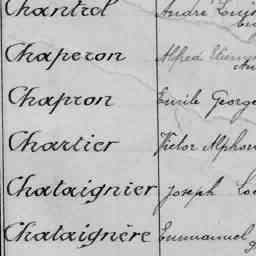 Chantrol André Louis
Chaperon Alfred
Chapron Emile George
Chartier Victor Alphon
Chataignier Joseph
Chataignère Emmanuel